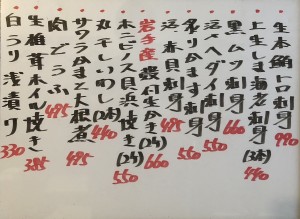 生本鮪トロ刺身 990
上生しま海老刺身(3本) 440
黒ムツ刺身 660
活ヘダイ刺身 550
炙りかます刺身 550
活赤貝刺身 495
岩手産殻付生かき(2ケ) 660
ホンビノス貝浜焼き(2ケ) 550
丸干しいわし(2本) 440
サワラかまと大根煮 495
肉どうふ 495
生椎茸ホイル焼き 385
白うり浅漬り 330